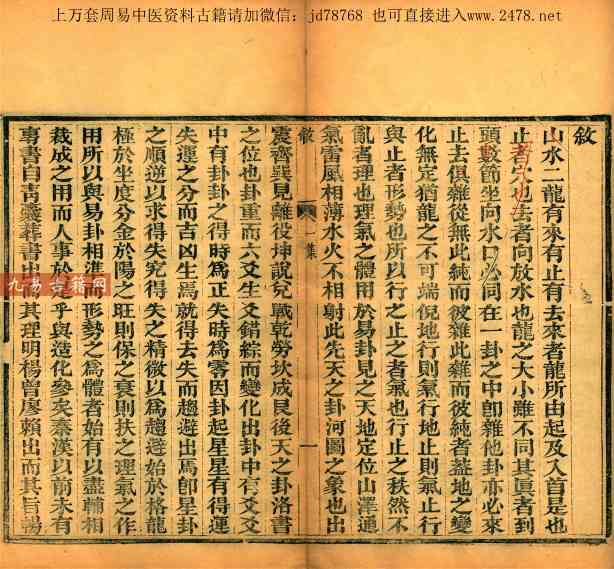 上万套周易中医资料古籍请加微信：jd78768 也可直接进入www.2478.net
敘
山水二龍有來有止有去來者龍所由起及入首是也
止者穴也去者向放水也龍之大小雖不同其眞者到
頭數節坐向水口必同在一卦之中卽雜他卦亦必來
止去俱雜從無此純而彼雜此雜而彼純者蓋地之變
化無定猶龍之不可端倪地行則氣行地止則氣止行
與止者形勢也所以行之止之者氣也行止之秩然不
亂者理也理氣之體用於易卦見之天地定位山澤通
氣雷風相薄水火不相射此先天之卦河圖之象也出
敘 一集
一
震齊巽見離役坤說兌戰乾勞坎成艮後天之卦洛書
之位也卦重而六爻生爻錯綜而變化出卦中有爻爻
中有卦卦之得時爲正失時爲零因卦起星星有得運
失運之分而吉凶生焉就得去失而趨避出焉卽星卦
之順逆以求得失究得失之精微以爲趨避始於格龍
極於坐度分金於陽之旺則保之衰則扶之理氣之作
用所以與易卦相準而形勢之爲體者始有以盡輔相
裁成之用而人事於是乎與造化參矣秦漢以前未有
專書自靑囊葬書出而其理明楊曾廖賴出而其旨暢
九易古籍网